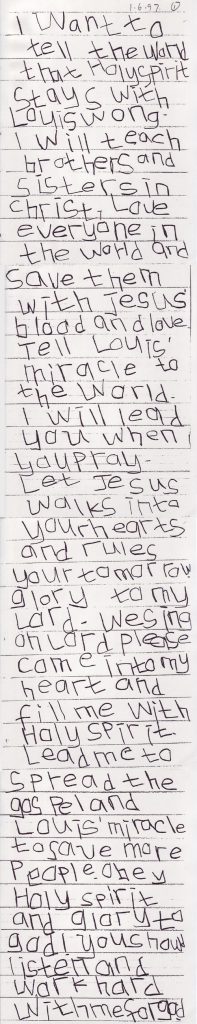 1.6.97 ①
I want to
tell the world
that Holy spirit
stays with
Louis Wong.
I will teach
brothers and
sisters in
christ, Love
everyone in
the world and
save them
with jesus'
blood and love.
Tell Louis'
miracle to
the world.
I will lead
you when
you pray.
Let Jesus
walks into
your hearts
and rules
your tomorrow
glory to my
Lord. we sing
on Lord please
come into my
heart and
fill me with
Holy spirit
Lead me to
spread the
gospel and
Louis' miracle
to save more
People obey
Holy spirit
and glory to
god! you show
listen and
work hard
with me for god